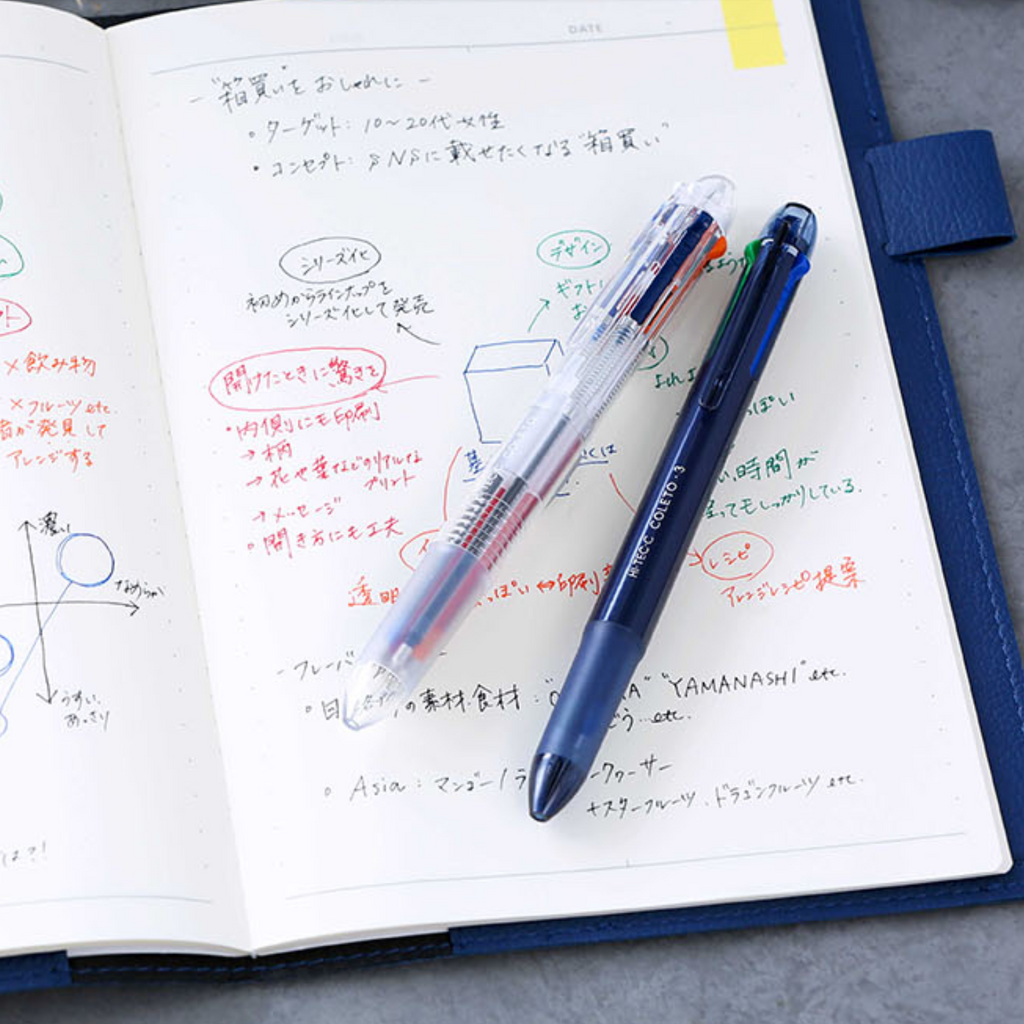 DATE
- "箱買い"をおしゃれに -
• ターゲット: 10〜20代女性
• コンセプト: SNSに載せたくなる"箱買い"
シリーズ化
初めからラインナップを
シリーズ化して発売
デザイン
ギフト
開けたときに驚きを
・内側にも印刷
→ 柄
→ 花や葉などのリアルな
プリント
→ メッセージ
• 開き方にも工夫
っぽい
時間が
てもしっかりしている.
レシピ
アレンジレシピ提案
透明
っぽい ⇔ 印刷
- フレーバ
• の素材.食材: "YAMANASHI" etc.
どう...etc.
• Asia: マンゴー/ラ
+スターフルーツ、ドラゴンフルーツ etc.
×飲み物
×フルーツ etc.
が発見して
アレンジする
濃い
なめらか
うすい.
あっさり
は?!
HI-TEC-C COLETO・3